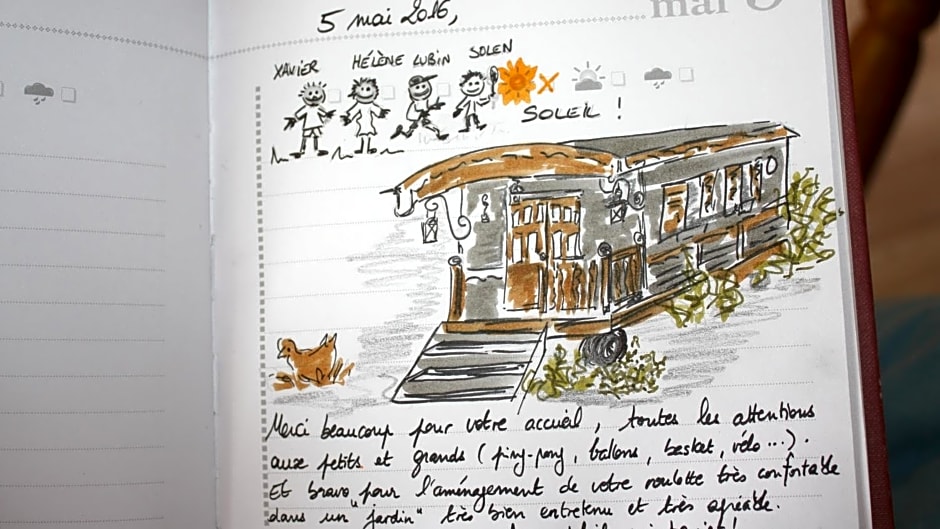 mai
5 mai 2016,
XAVIER HÉLÈNE LUBIN SOLEN
SOLEIL !
Merci beaucoup pour votre accueil, toutes les attentions
aux petits et grands (ping-pong, ballons, basket, vélo ...).
Et bravo pour l'aménagement de votre roulotte très confortable
dans un "jardin" très bien entretenu et très agréable.